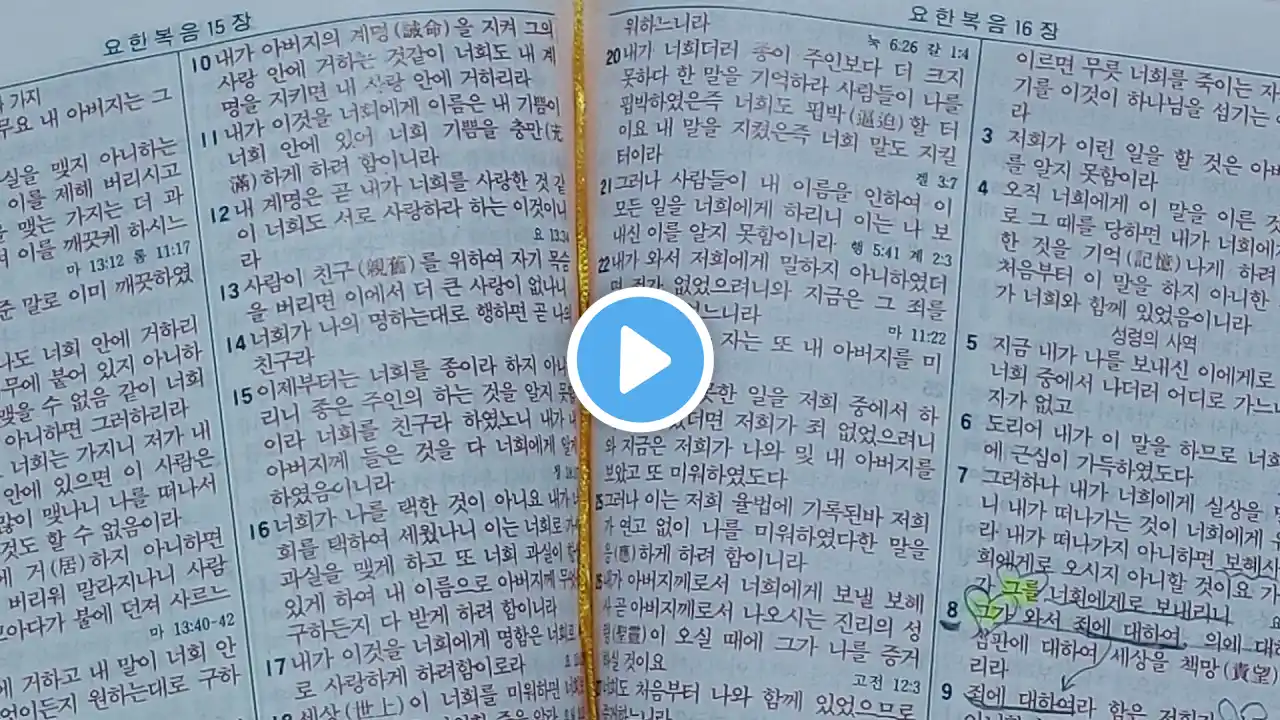 요한복음 15장
요한복음 16장
가지
무요 내 아버지는 그
실을 맺지 아니하는
이를 제해 버리시고
맺는 가지는 더 과
이를 깨끗케 하시느
마 13:12 롬 11:17
준 말로 이미 깨끗하였
나도 너희 안에 거하리
무에 붙어 있지 아니하
맺을 수 없음 같이 너희
아니하면 그러하리라
너희는 가지니 저가 내
안에 있으면 이 사람은
많이 맺나니 나를 떠나서
것도 할 수 없음이라
거(居)하지 아니하면
버리워 말라지나니 사람
모아다가 불에 던져 사르느
마 13:40-42
에 거하고 내 말이 너희 안
엇이든지 원하는대로 구하
10 내가 아버지의 계명(誡命)을 지켜 그의
사랑 안에 거하는 것같이 너희도 내 계
명을 지키면 내 사랑 안에 거하리라
11 내가 이것을 너희에게 이름은 내 기쁨이
너희 안에 있어 너희 기쁨을 충만(充
滿)하게 하려 함이니라
12 내 계명은 곧 내가 너희를 사랑한 것 같
이 너희도 서로 사랑하라 하는 이것이니
라 요 13:34
13 사람이 친구(親舊)를 위하여 자기 목숨
을 버리면 이에서 더 큰 사랑이 없나니
14 너희가 나의 명하는대로 행하면 곧 나의
친구라
15 이제부터는 너희를 종이라 하지 아니
리니 종은 주인의 하는 것을 알지 못
이라 너희를 친구라 하였노니 내가 내
아버지께 들은 것을 다 너희에게 알게
하였음이니라
16 너희가 나를 택한 것이 아니요 내가 너
희를 택하여 세웠나니 이는 너희로 가서
과실을 맺게 하고 또 너희 과실이 항
있게 하여 내 이름으로 아버지께 무엇을
구하든지 다 받게 하려 함이니라
17 내가 이것을 너희에게 명함은 너희로
로 사랑하게 하려함이로라
18 세상(世上)이 너희를 미워하면
위하느니라
눅 6:26 갈 1:4
20 내가 너희더러 종이 주인보다 더 크지
못하다 한 말을 기억하라 사람들이 나를
핍박하였은즉 너희도 핍박(逼迫)할 터
이요 내 말을 지켰은즉 너희 말도 지킬
터이라
겐 3:7
21 그러나 사람들이 내 이름을 인하여 이
모든 일을 너희에게 하리니 이는 나 보
내신 이를 알지 못함이니라 행 5:41 계 2:3
22 내가 와서 저희에게 말하지 아니하였더
면 죄가 없었으려니와 지금은 그 죄를
느니라
마 11:22
자는 또 내 아버지를 미
못한 일을 저희 중에서 하
였더면 저희가 죄 없었으려니
와 지금은 저희가 나와 및 내 아버지를
보았고 또 미워하였도다
25 그러나 이는 저희 율법에 기록된바 저희
가 연고 없이 나를 미워하였다한 말을
응(應)하게 하려 함이니라
26 내가 아버지께로서 너희에게 보낼 보혜
사 곧 아버지께로서 나오시는 진리의 성
령(聖靈)이 오실 때에 그가 나를 증거
하실 것이요
고전 12:3
27 너희도 처음부터 나와 함께 있었으므로
증거하느니라
이르면 무릇 너희를 죽이는 자
기를 이것이 하나님을 섬기는
라
3 저희가 이런 일을 할 것은 아버
를 알지 못함이라
4 오직 너희에게 이 말을 이른 것
로 그 때를 당하면 내가 너희에게
한 것을 기억(記憶)나게 하려
처음부터 이 말을 하지 아니한
가 너희와 함께 있었음이니라
성령의 사역
5 지금 내가 나를 보내신 이에게로
너희 중에서 나더러 어디로 가느
자가 없고
6 도리어 내가 이 말을 하므로 너희
에 근심이 가득하였도다
7 그러하나 내가 너희에게 실상을
니 내가 떠나가는 것이 너희에게 유
라 내가 떠나가지 아니하면 보혜사
희에게로 오시지 아니할 것이요 가
자 그를 너희에게로 보내리니
8 그가 와서 죄에 대하여, 의에 대하
심판에 대하여 세상을 책망(責望)
리라
9 죄에 대하여라 함은 저희가